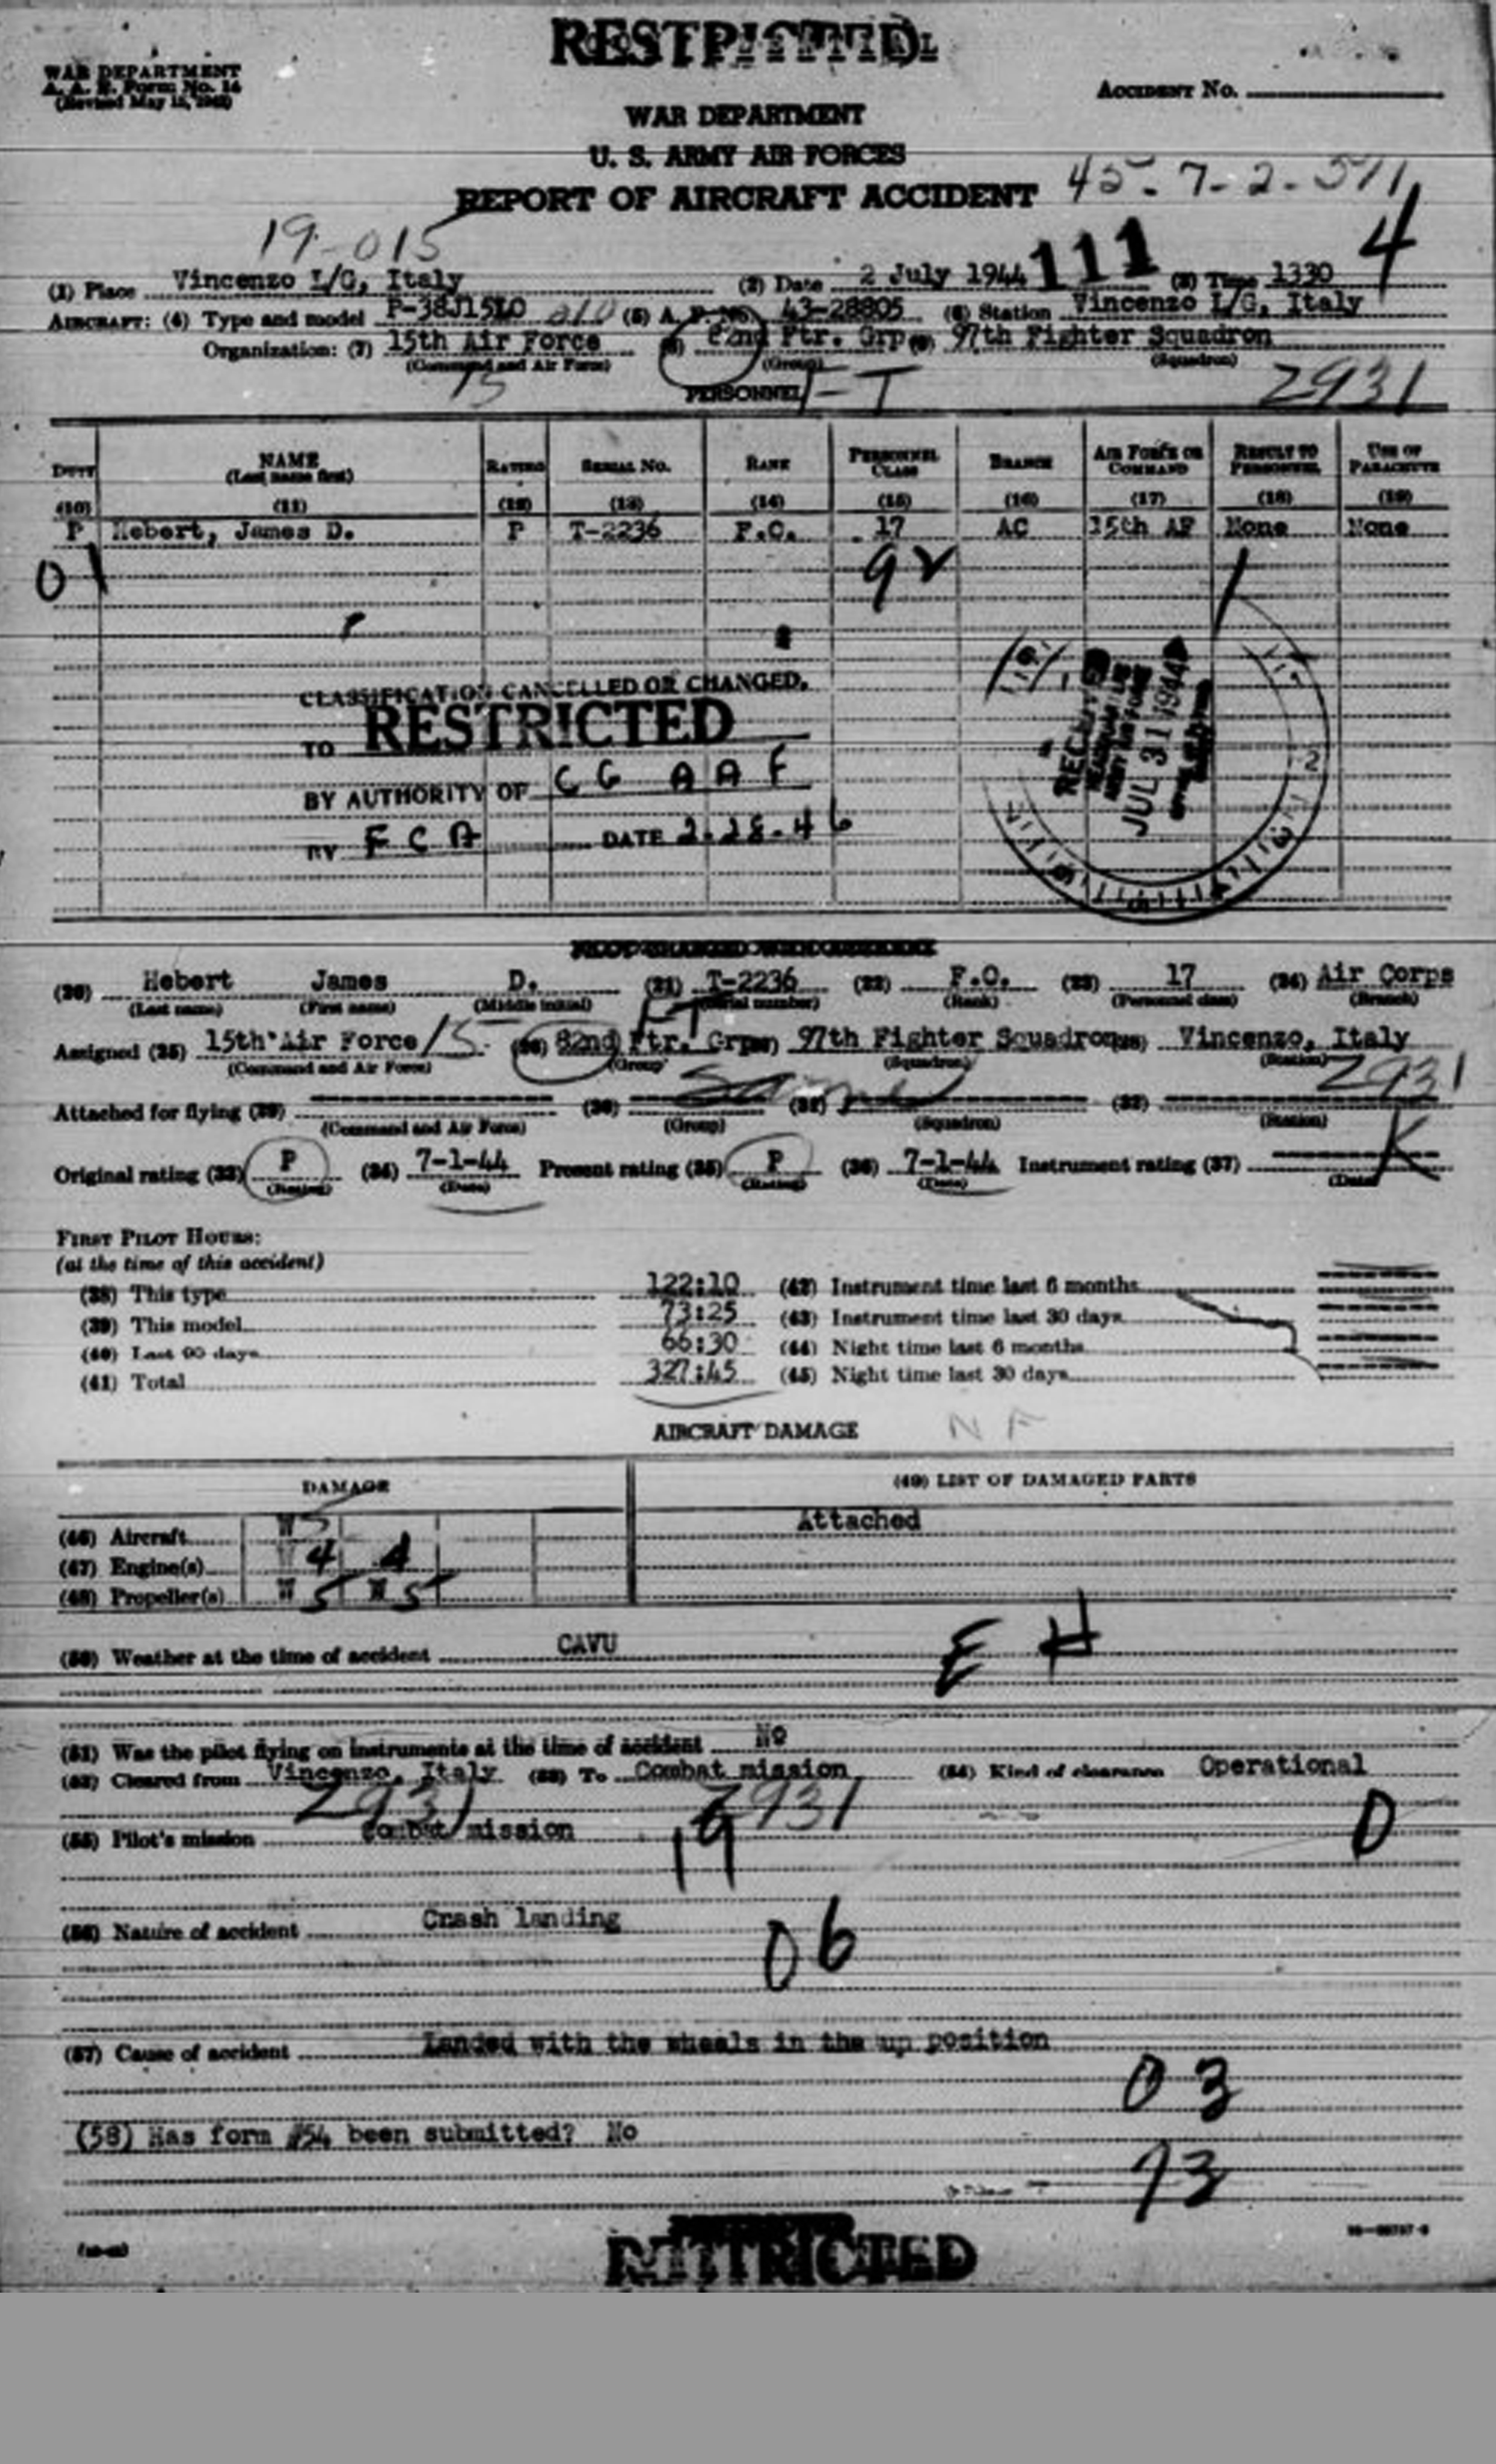 RESTRICTED
WAR DEPARTMENT
A. A. F. Form No. 14
(Revised May 15, 1942)
ACCIDENT NO.
WAR DEPARTMENT
U. S. ARMY AIR FORCES
REPORT OF AIRCRAFT ACCIDENT 45-7-2-511
19-015 111 4
(1) Place Vincenzo L/G, Italy (2) Date 2 July 1944 (3) Time 1330
AIRCRAFT: (4) Type and model P-38J15LO 010 (5) A. F. No. 43-28805 (6) Station Vincenzo L/G, Italy
Organization: (7) 15th Air Force (8) 82nd Ftr. Grp (9) 97th Fighter Squadron
(Command and Air Force) (Group) (Squadron)
15 PERSONNEL F T 2931
DUTY NAME (Last name first) RATING SERIAL NO. RANK PERSONNEL CLASS BRANCH AIR FORCE OR COMMAND RESULT TO PERSONNEL USE OF PARACHUTE
(10) (11) (12) (13) (14) (15) (16) (17) (18) (19)
P Hebert, James D. P T-2236 F.O. 17 AC 15th AF None None
01 92
CLASSIFICATION CANCELLED OR CHANGED.
TO RESTRICTED
BY AUTHORITY OF CG AAF
BY FCA DATE 2-28-46
JUL 31 1944
(20) Hebert James D. (21) T-2236 (22) F.O. (23) 17 (24) Air Corps
(Last name) (First name) (Middle initial) (Serial number) (Rank) (Personnel class) (Branch)
Assigned (25) 15th Air Force 15 (26) 82nd Ftr. Grp (27) 97th Fighter Squadron (28) Vincenzo, Italy
(Command and Air Force) (Group) (Squadron) (Station)
Same 2931
Attached for flying (29) (30) (31) (32)
(Command and Air Force) (Group) (Squadron) (Station)
Original rating (33) P (34) 7-1-44 Present rating (35) P (36) 7-1-44 Instrument rating (37)
(Rating) (Date) (Rating) (Date) (Date)
FIRST PILOT HOURS:
(at the time of this accident)
(38) This type 122:10 (42) Instrument time last 6 months
(39) This model 73:25 (43) Instrument time last 30 days
(40) Last 90 days 66:30 (44) Night time last 6 months
(41) Total 327:45 (45) Night time last 30 days
AIRCRAFT DAMAGE N F
DAMAGE (49) LIST OF DAMAGED PARTS
(46) Aircraft W 5 Attached
(47) Engine(s) 4 4
(48) Propeller(s) W 5 W 5
(50) Weather at the time of accident CAVU
E H
(51) Was the pilot flying on instruments at the time of accident No
(52) Cleared from Vincenzo, Italy (53) To Combat mission (54) Kind of clearance Operational
2931 2931
(55) Pilot's mission Combat mission 19 D
(56) Nature of accident Crash landing
06
(57) Cause of accident Landed with the wheels in the up position
03
(58) Has form #54 been submitted? No
93
RESTRICTED